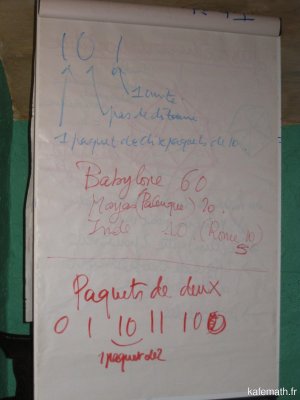 1 0 1
1 unité
pas de dizaine
1 paquet de dix paquets de 10.
Babylone 60
Mayas (Palenque) 20.
Inde 10 (Rome 10)
5
Paquets de deux
0 1 10 11 100
1 paquet de 2
kafemath.fr